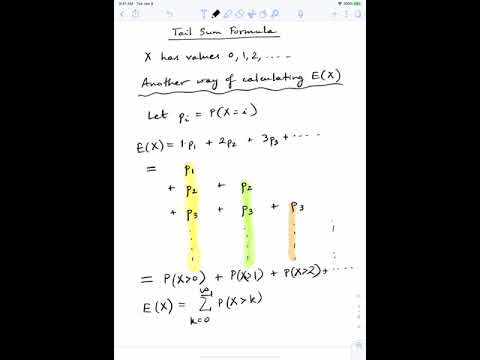 9:41 AM Tue Jan 8
Tail Sum Formula
X has values 0, 1, 2, ....
Another way of calculating E(X)
Let pᵢ = P(X=i)
E(X) = 1·p₁ + 2p₂ + 3p₃ + ....
= p₁
+ p₂ + p₂
+ p₃ + p₃ + p₃
= P(X>0) + P(X>1) + P(X>2) + ....
E(X) = ∑_{k=0}^{∞} P(X>k)